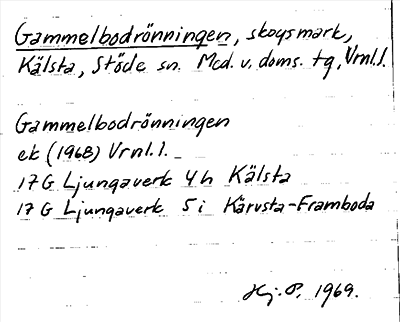 Gammelbodrönningen, skogsmark,
Kälsta, Stöde sn. Med. v. doms. tg, Vrnl.l.
Gammelbodrönningen
ek (1968) Vrnl.l.
17 G Ljungaverk 4h Kälsta
17 G Ljungaverk 5i Kärvsta-Framboda
Hj. P. 1969.